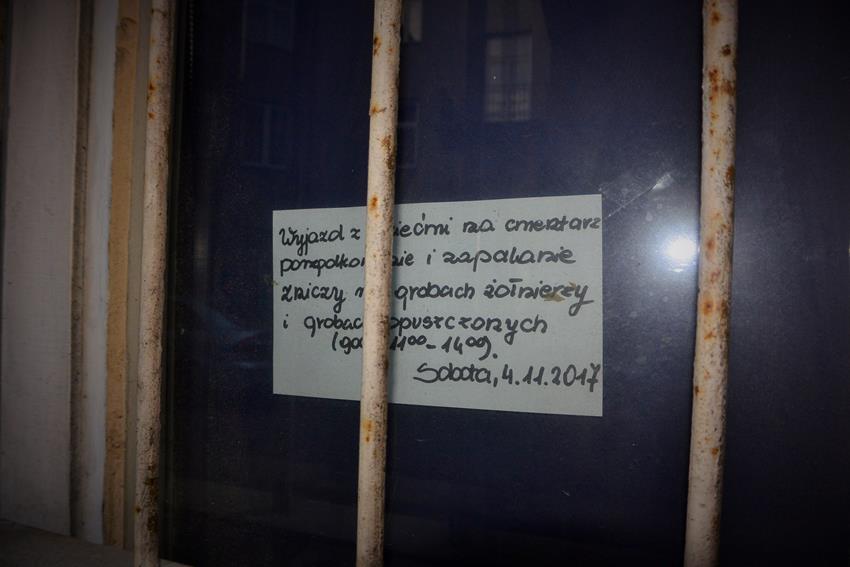 Wyjazd z iećmi na cmentarz
porządko nie i zapalanie
zniczy n grobach żołnierzy
i grobac opuszczonych
(900 1100-1400).
Sobota, 4.11.2017